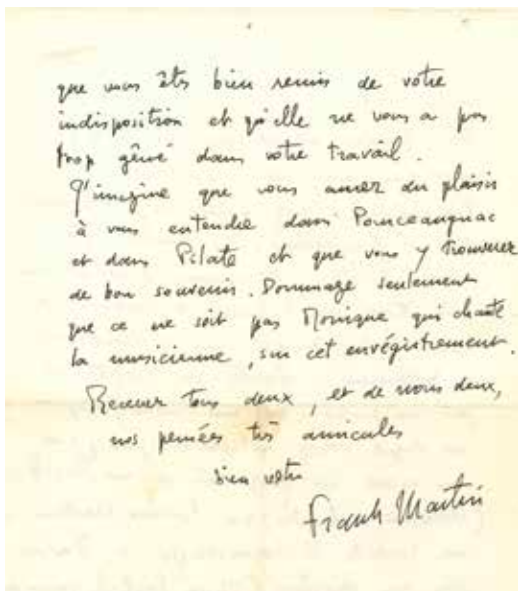 que vous êtes bien remis de votre
indisposition et qu'elle ne vous a pas
trop gêné dans votre travail.
J'imagine que vous aurez du plaisir
à vous entendre dans Pourceaugnac
et dans Pilate et que vous y trouverez
de bon souvenirs. Dommage seulement
que ce ne soit pas Monique qui chante
la musicienne, sur cet enrégistrement.
Recevez tous deux, et de nous deux,
nos pensées très amicales
bien votre
Frank Martin